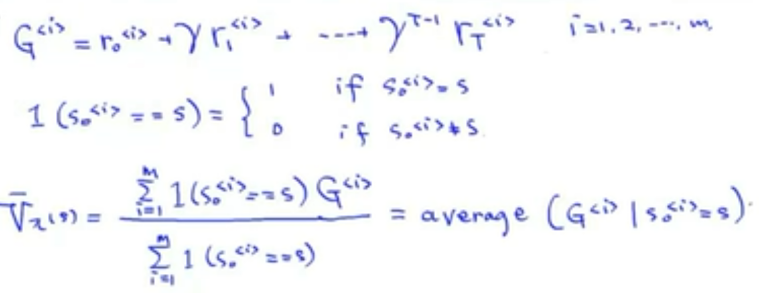 G^{<i>} = r_0^{<i>} + γ r_1^{<i>} + ----+ γ^{T-1} r_T^{<i>} i=1, 2, ---, m,
1 (s_0^{<i>} == s) = { 1 if s_0^{<i>} = s
0 if s_0^{<i>} ≠ s.
V̄_π(s) = \frac{∑_{i=1}^{m} 1(s_0^{<i>} == s) G^{<i>}}{∑_{i=1}^{m} 1 (s_0^{<i>} == s)} = average (G^{<i>} | s_0^{<i>} = s).